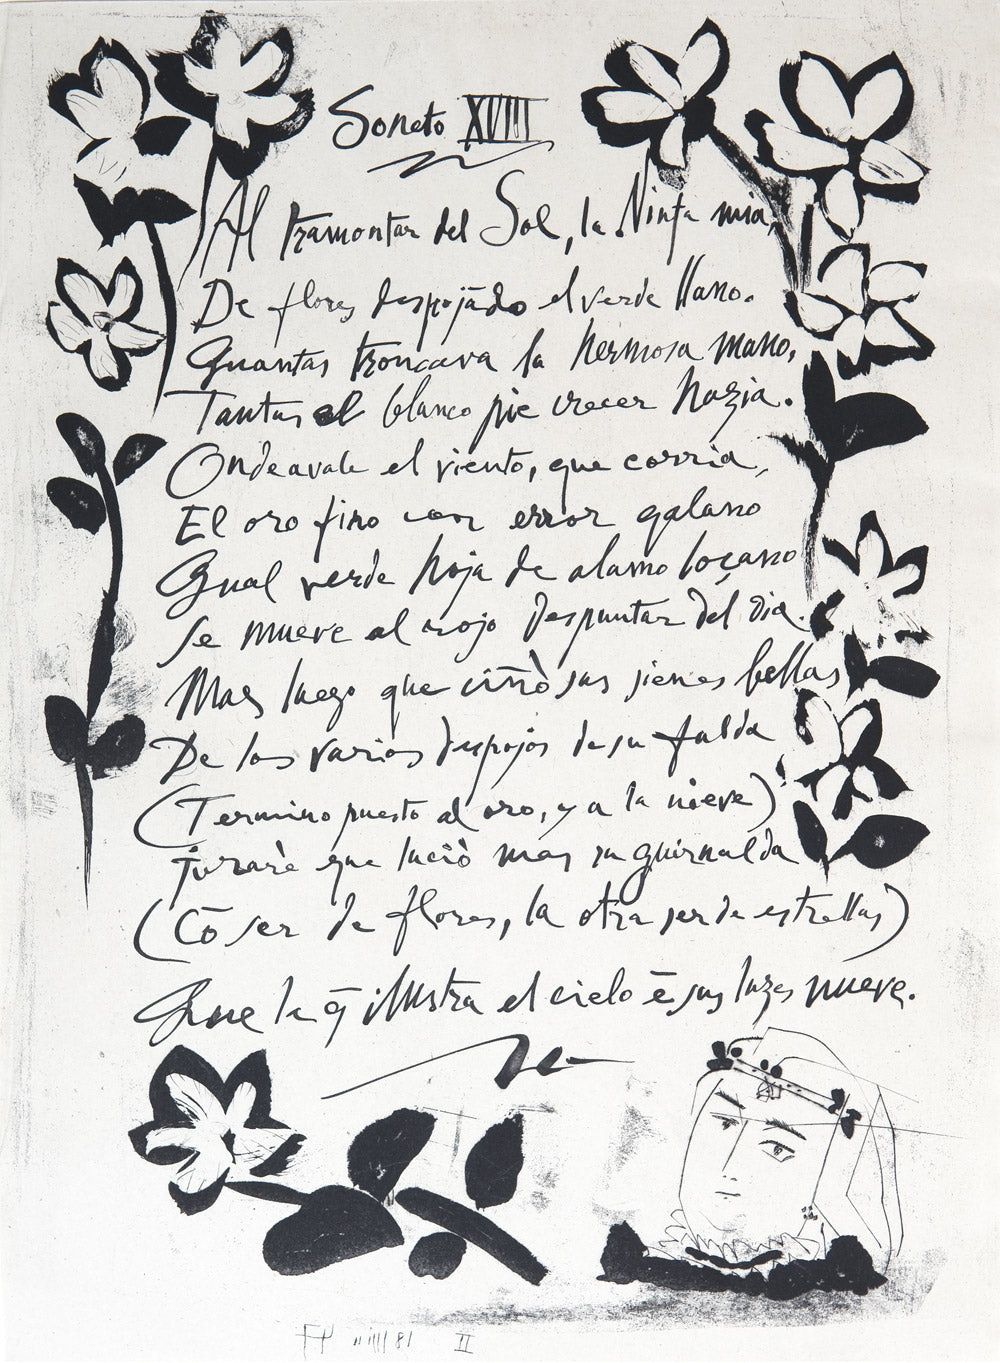 Soneto XVIII
Al tramontar del Sol, la Ninfa mia,
De flores despojādo el verde llano.
Quantas troncava la hermosa mano,
Tantas el blanco pie crecer hazia.
Ondeavale el viento, que corria,
El oro fino con error galano
Qual verde hoja de alamo loçano
Se mueve al rojo despuntar del dia.
Mas luego que ciñò sus sienes bellas
De los varios despojos de su falda
(Termino puesto al oro, y a la nieve)
Jurarè que luciò mas su guirnalda
(Cō ser de flores, la otra ser de estrellas)
Que la q̄ illustra el cielo ē sus luzes nueve.
II